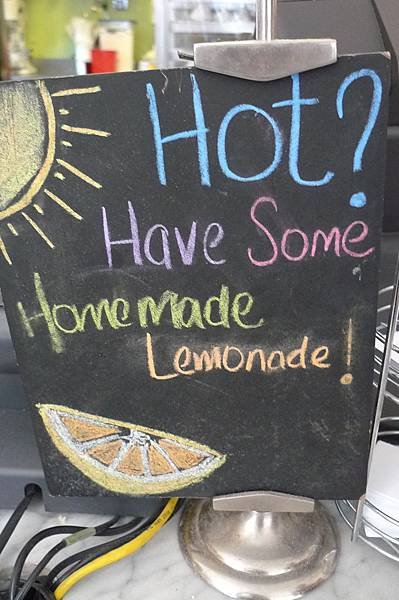 Hot?
Have Some
Homemade
Lemonade!